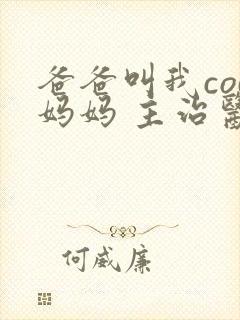 爸爸叫我co
妈妈 主治
何威廉